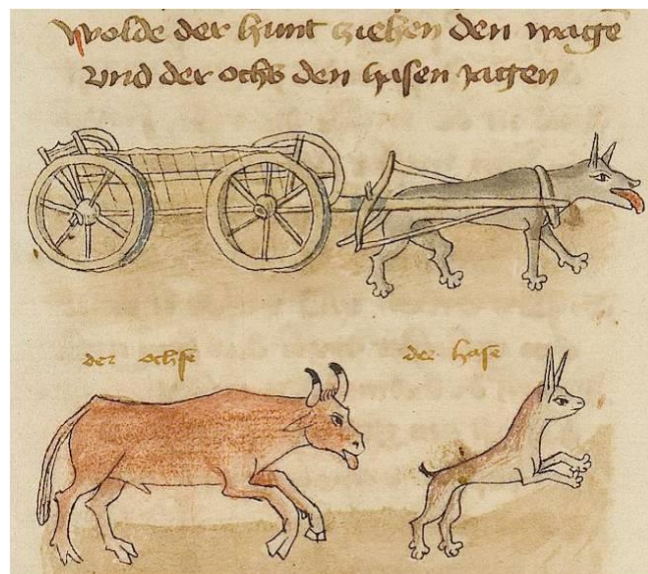 wolde der hunt ziehen den wage
vnd der ochs den hasen jagen
der ochse
der hase